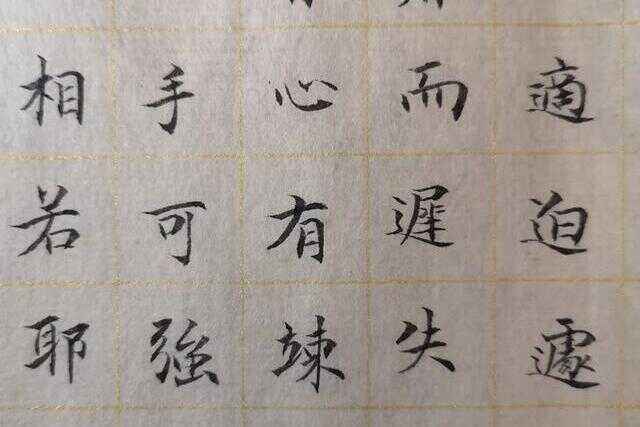 適迫遽
而遲失
心有竦
手可強
相若耶